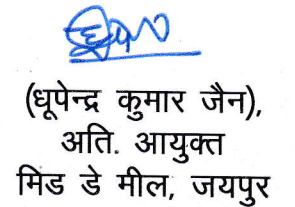 (धूपेन्द्र कुमार जैन),
अति. आयुक्त
मिड डे मील, जयपुर